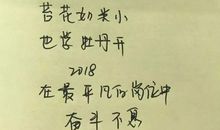 苔花如米小
也学牡丹开
2018
在最平凡的岗位中
奋斗不息